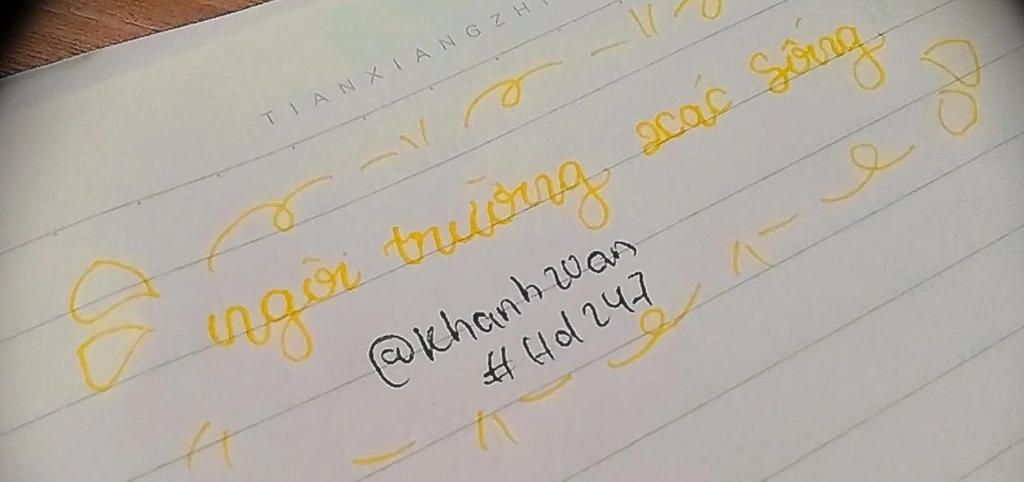 TIANXIANGZHI
ngôi trường xác sống
@Khanhwan
#Hd247